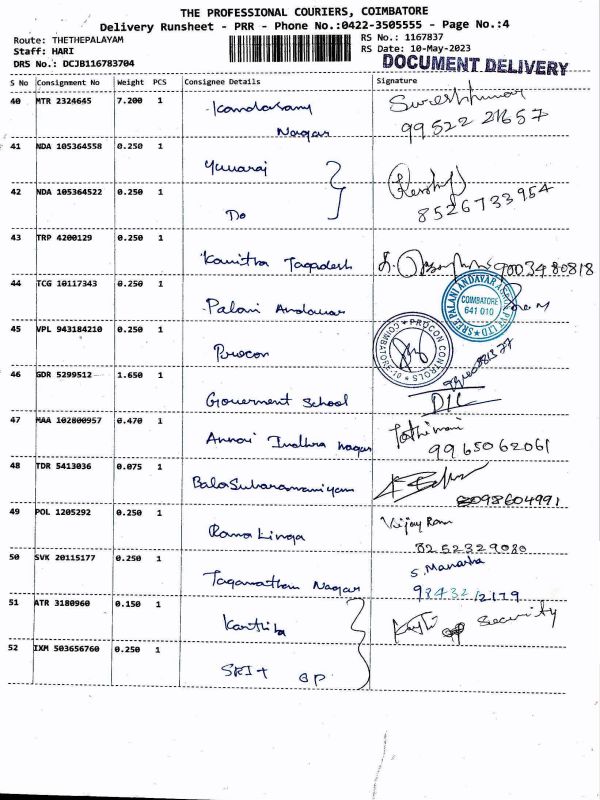 THE PROFESSIONAL COURIERS, COIMBATORE
Delivery Runsheet - PRR - Phone No.:0422-3505555 - Page No.:4
Route: THETHEPALAYAM RS No.: 1167837
Staff: HARI RS Date: 10-May-2023
DRS No.: DCJB116783704 DOCUMENT DELIVERY
S No Consignment No Weight PCS Consignee Details Signature
40 MTR 2324645 7.200 1 Kandasamy Sureshkumar
Nagar 99522 21657
41 NDA 105364558 0.250 1 Yuvaraj
42 NDA 105364522 0.250 1 Do 8526733954
43 TRP 4200129 0.250 1 Kavitha 9003480818
44 TCG 10117343 0.250 1 Palani Andavar
SREE PALANI ANDAVAR PVT LTD
COIMBATORE
641 010
45 VPL 943184210 0.250 1 Procon
PROCON CONTROLS
46 GDR 5299512 1.650 1 Government School
47 MAA 102800957 0.470 1 Annai Indhra nagar
9965062061
48 TDR 5413036 0.075 1 BalaSubaramaniyam
8098604991
49 POL 1205292 0.250 1 Rama Linga Vijay Ram
8252329080
50 SVK 20115177 0.250 1 Nagar S. Manasha
98432/2179
51 ATR 3180960 0.150 1 Karthik Security
52 IXM 503656760 0.250 1 SRI + GP